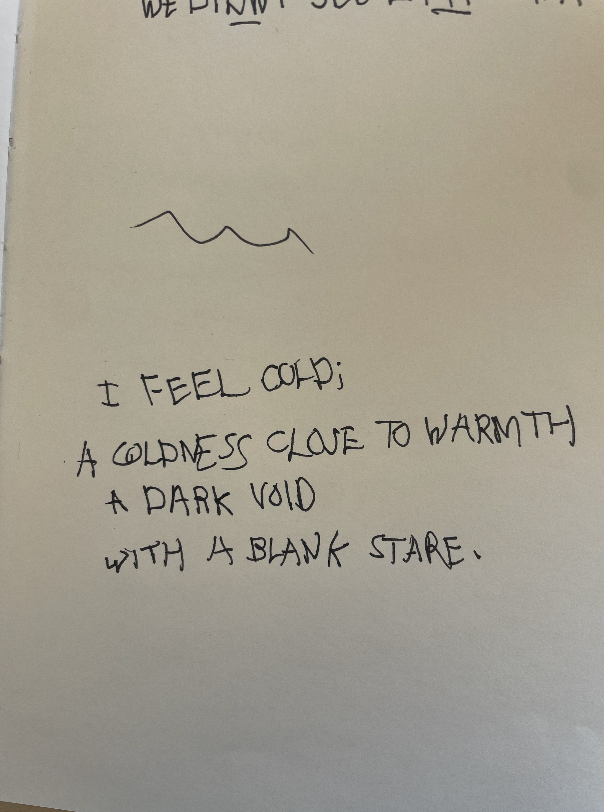 WE DIDN'T
I FEEL COLD;
A COLDNESS CLOSE TO WARMTH
A DARK VOID
WITH A BLANK STARE.